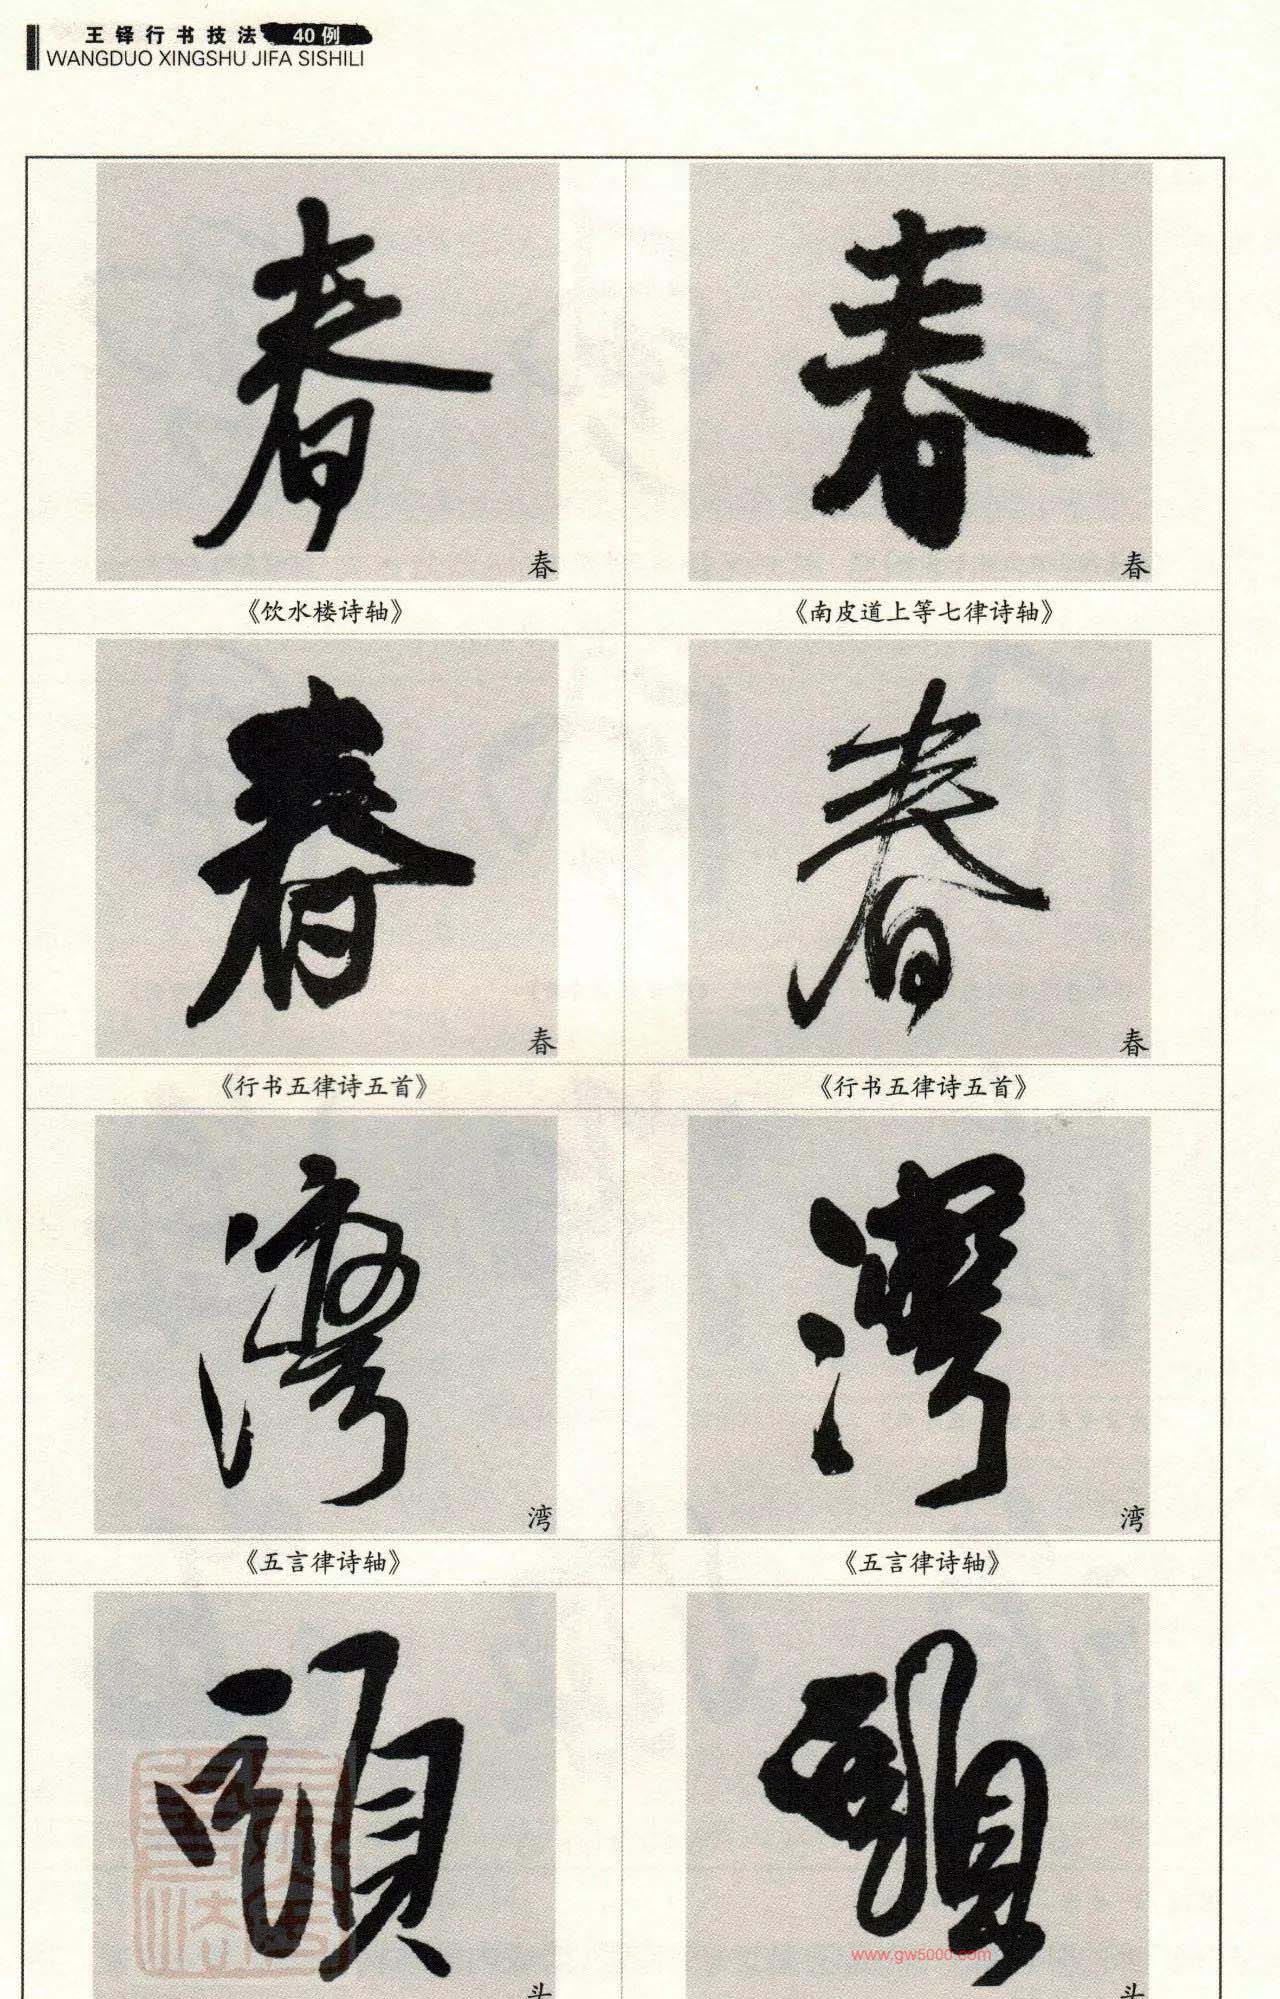 王铎行书技法 40例
WANGDUO XINGSHU JIFA SISHILI
春 春
春 春
《饮水楼诗轴》 《南皮道上等七律诗轴》
春 春
春 春
《行书五律诗五首》 《行书五律诗五首》
灣 灣
湾 湾
《五言律诗轴》 《五言律诗轴》
頭 頭
www.gw5000.com
头 头